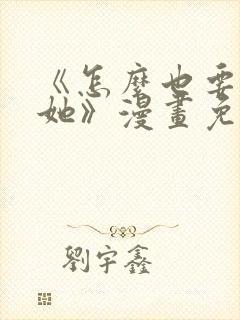 《怎麼也要
她》漫畫免
劉宇鑫